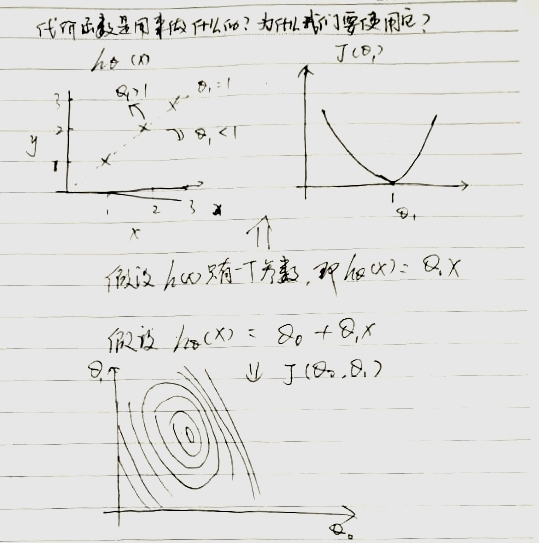 代价函数是用来做什么的？为什么我们要使用它？
hθ(x)
J(θ₁)
θ₁>1
θ₁=1
3
2
θ₁<1
y
1
1
2
3
x
x
1
θ₁
⇑
假设h(x)只有一个参数，即hθ(x)=θ₁x
假设hθ(x)=θ₀+θ₁x
θ₁
⇓ J(θ₀,θ₁)
θ₀